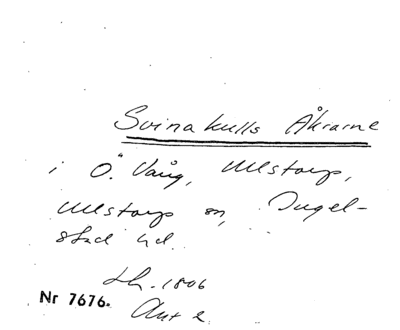 Svinakulls Åkrarne
i Ö. Vång, Ullstorp,
Ullstorps sn, Ingel-
stad hd.
Lh. 1806
Nr 7676.
Akt 2.